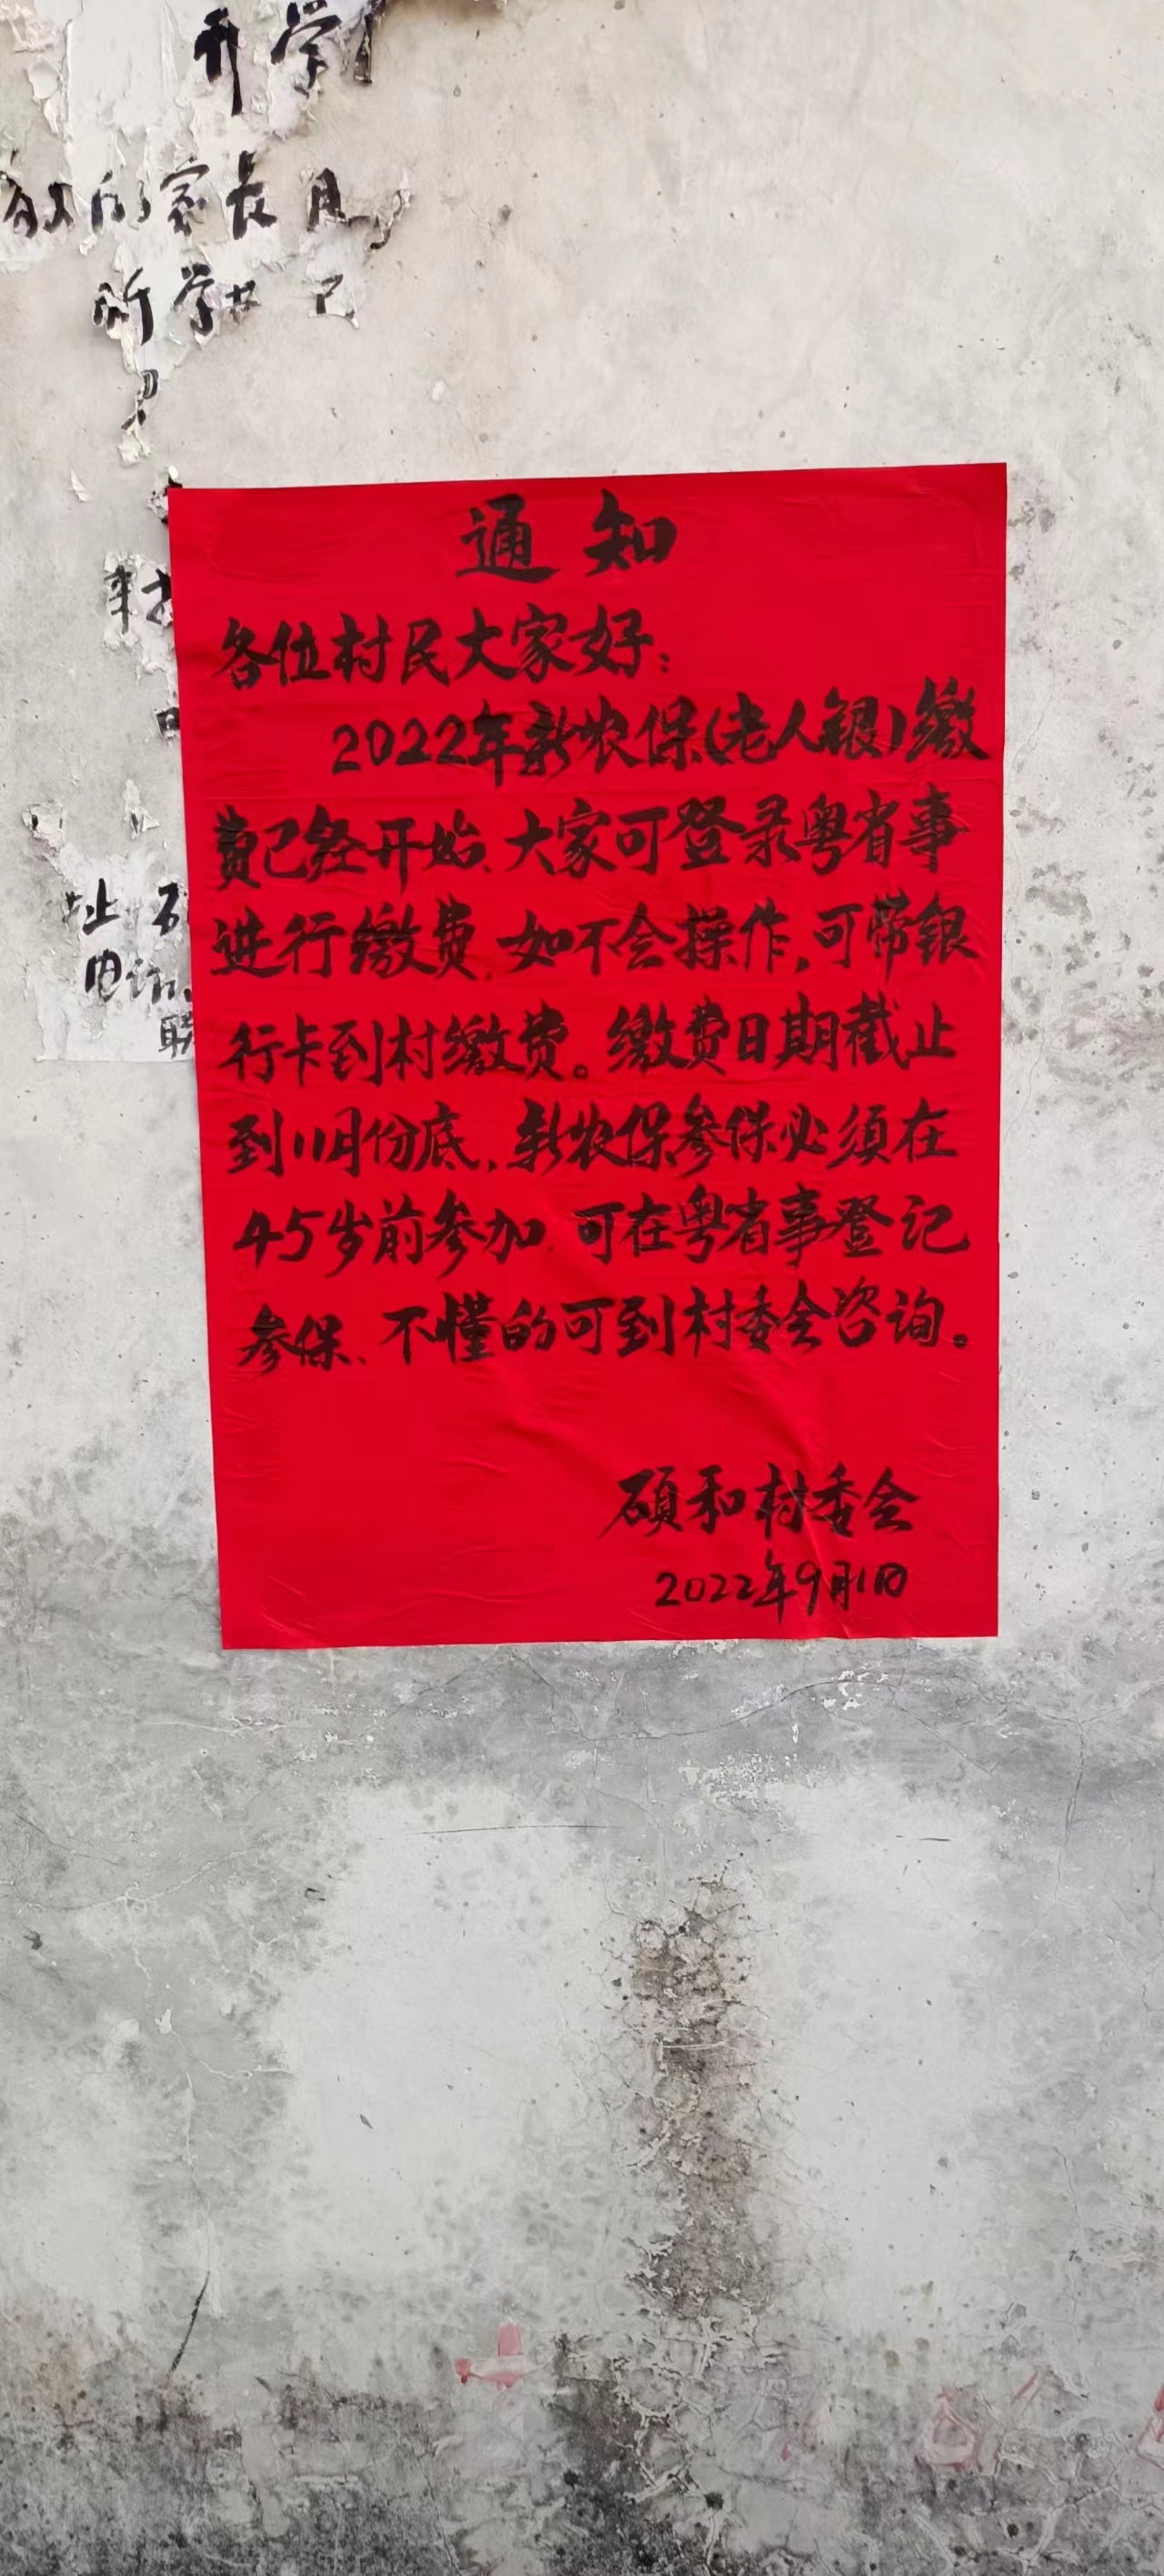 开学
的家长
所学
通知
各位村民大家好:
2022年新农保(老人银)缴
费已经开始、大家可登录粤省事
进行缴费、如不会操作,可带银
行卡到村缴费。缴费日期截止
到11月份底,新农保参保必须在
45岁前参加、可在粤省事登记
参保、不懂的可到村委会咨询。
硕和村委会
2022年9月1日
址
电
联